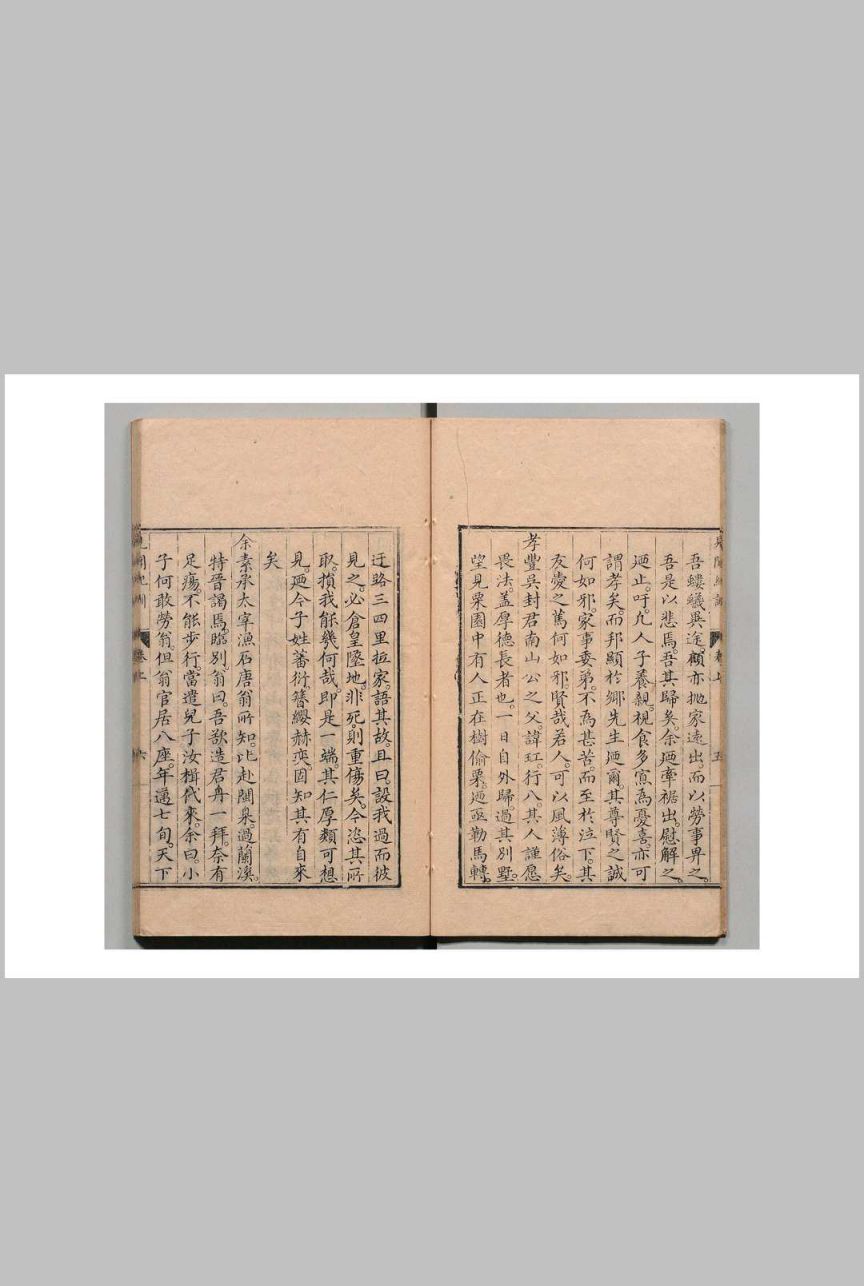 吾螻蟻異途。顧亦拋家遠出。而以勞事畀之。
吾是以悲焉。吾其歸矣。余廼牽裾出。慰解之。
廼止。吁。凡人子養親。視食多寡為憂喜。亦可
謂孝矣。而邦顯於鄉先生廼爾。其尊賢之誠
何如邪。家事委弟。不為甚苦。而至於泣下。其
友愛之篤何如邪。賢哉若人。可以風薄俗矣。
孝豐吳封君南山公之父諱玒。行八。其人謹愿
畏法。蓋厚德長者也。一日自外歸。過其別墅。
望見栗園中有人正在樹偷栗。廼亟勒馬轉。
迂路三四里抵家。語其故。且曰。設我過而彼
見之。必倉皇墜地。非死。則重傷矣。今恣其所
取。損我能幾何哉。即是一端。其仁厚類可想
見。廼今子姓蕃衍。簪纓赫奕。固知其有自來
矣
余素承太宰漁石唐翁所知。比赴閩臬。過蘭溪。
特晉謁焉。臨別。翁曰。吾欲造君舟一拜。奈有
足瘍。不能步行。當遣兒子汝楫代來。余曰。小
子何敢勞翁。但翁官居八座。年邁七旬。天下
卷上
六